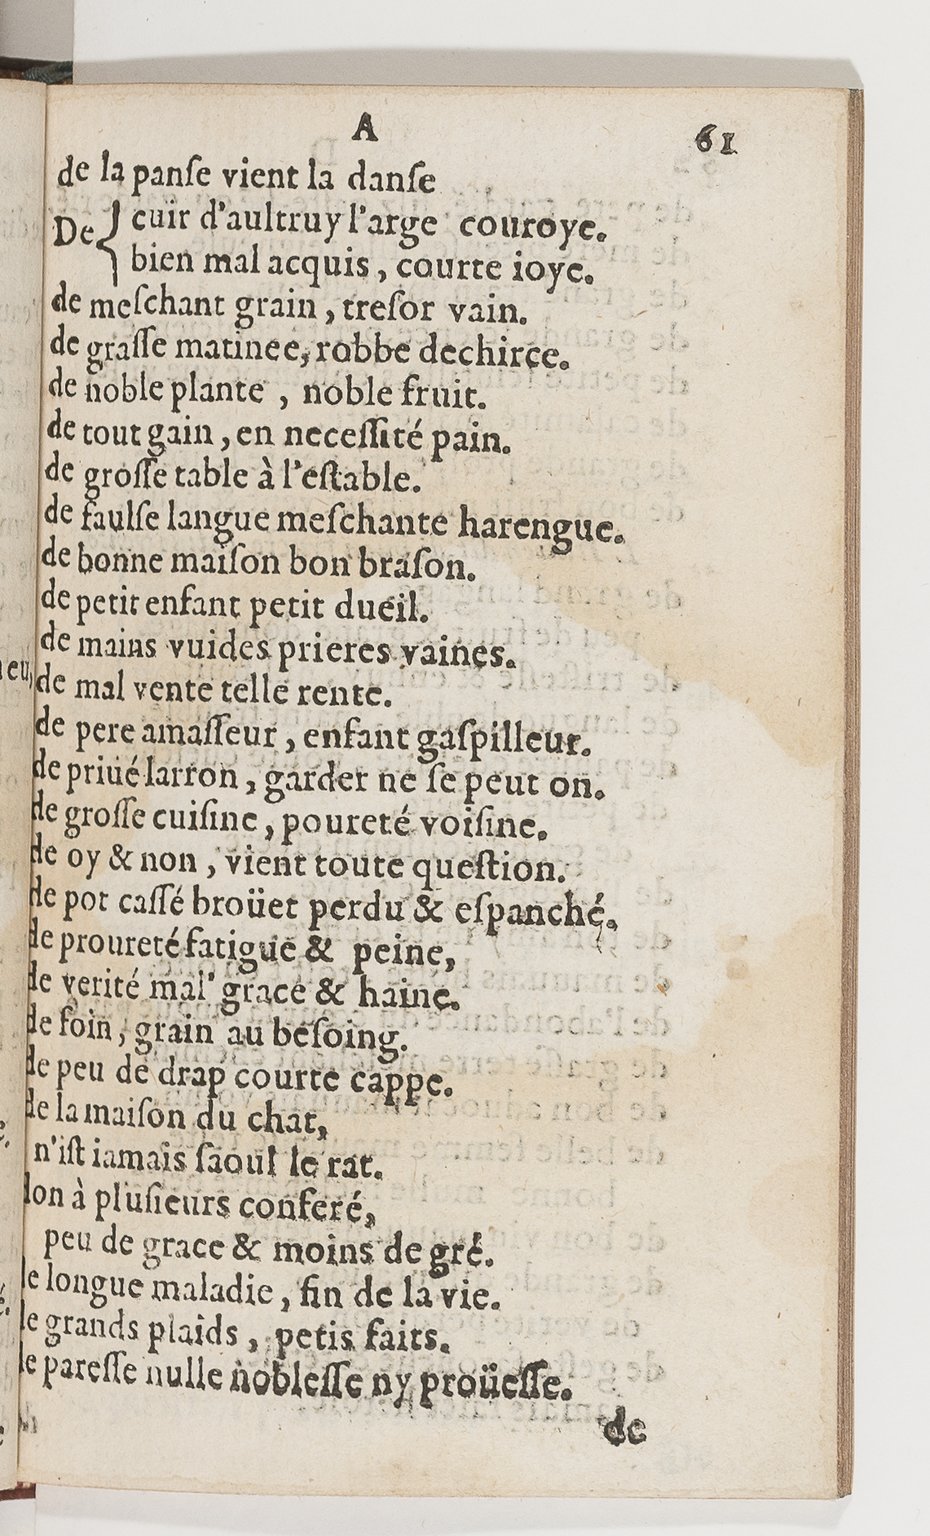 A 61
de la panſe vient la danſe
De { cuir d'aultruy l'arge couroye.
bien mal acquis, courte ioye.
de meſchant grain, treſor vain.
de graſſe matinee, robbe dechiree.
de noble plante, noble fruit.
de tout gain, en neceſſité pain.
de groſſe table à l'eſtable.
de faulſe langue meſchante harengue.
de bonne maiſon bon braſon.
de petit enfant petit dueil.
de mains vuides prieres vaines.
de mal vente telle rente.
de pere amaſſeur, enfant gaſpilleur.
de priué larron, garder ne ſe peut on.
de groſſe cuiſine, poureté voiſine.
de oy & non, vient toute queſtion.
de pot caſſé broüet perdu & eſpanché,
de proureté fatigue & peine,
de verité mal' grace & haine.
de foin, grain au beſoing.
de peu de drap courte cappe.
de la maiſon du chat,
n'iſt iamais ſaoul le rat.
don à pluſieurs conferé,
peu de grace & moins de gré.
de longue maladie, fin de la vie.
de grands plaids, petis faits.
de pareſſe nulle nobleſſe ny proüeſſe.
de